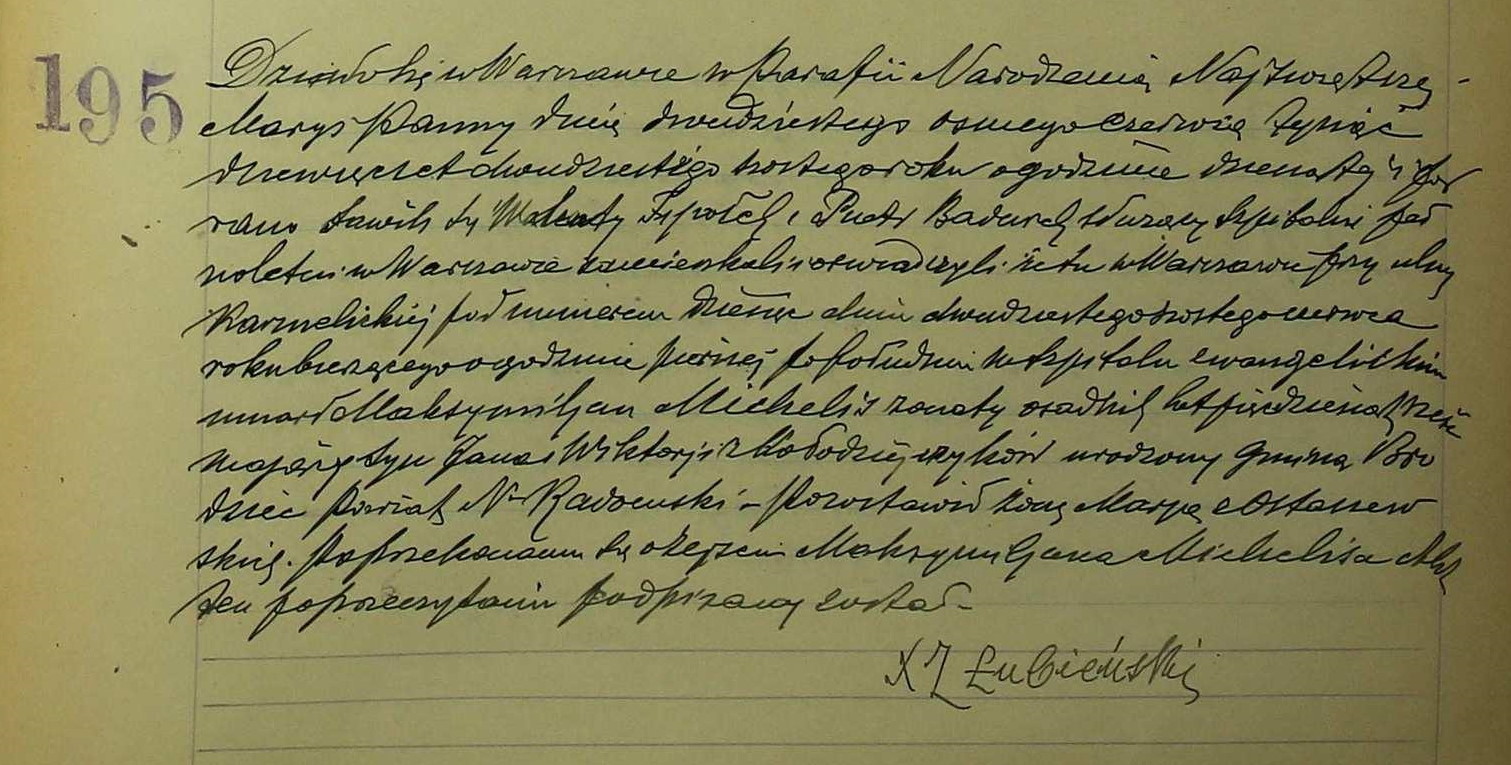 195
Działo się w Warszawie w Parafii Narodzenia Najświętszej
Maryi Panny dnia dwudziestego osmego czerwca tysiąc
dziewięcset dwudziestego szostego roku o godzinie dziesiątej
rano Stawili się Walenty i Piotr służący szpitalni peł
noletni w Warszawie zamieszkali i oswiadczyli że tu w Warszawie przy ulicy
Karmelickiej pod numerem dziesięć dnia dwudziestego szostego czerwca
roku bieżącego o godzinie pierwszej po południu w szpitalu ewangelickim
umarł Maksymiljan Michelis żonaty osadnik lat pięćdziesiąt sześć
mający syn Jana i Wiktorji z Kołodziejczyków urodzony gmina Bro
dzice powiat N-Radomski – pozostawił żonę Marję z Ostanew
skich. Po przekonaniu się o zejściu Maksymiljana Michelisa Akt
ten po przeczytaniu podpisany został –
X J Łubieński